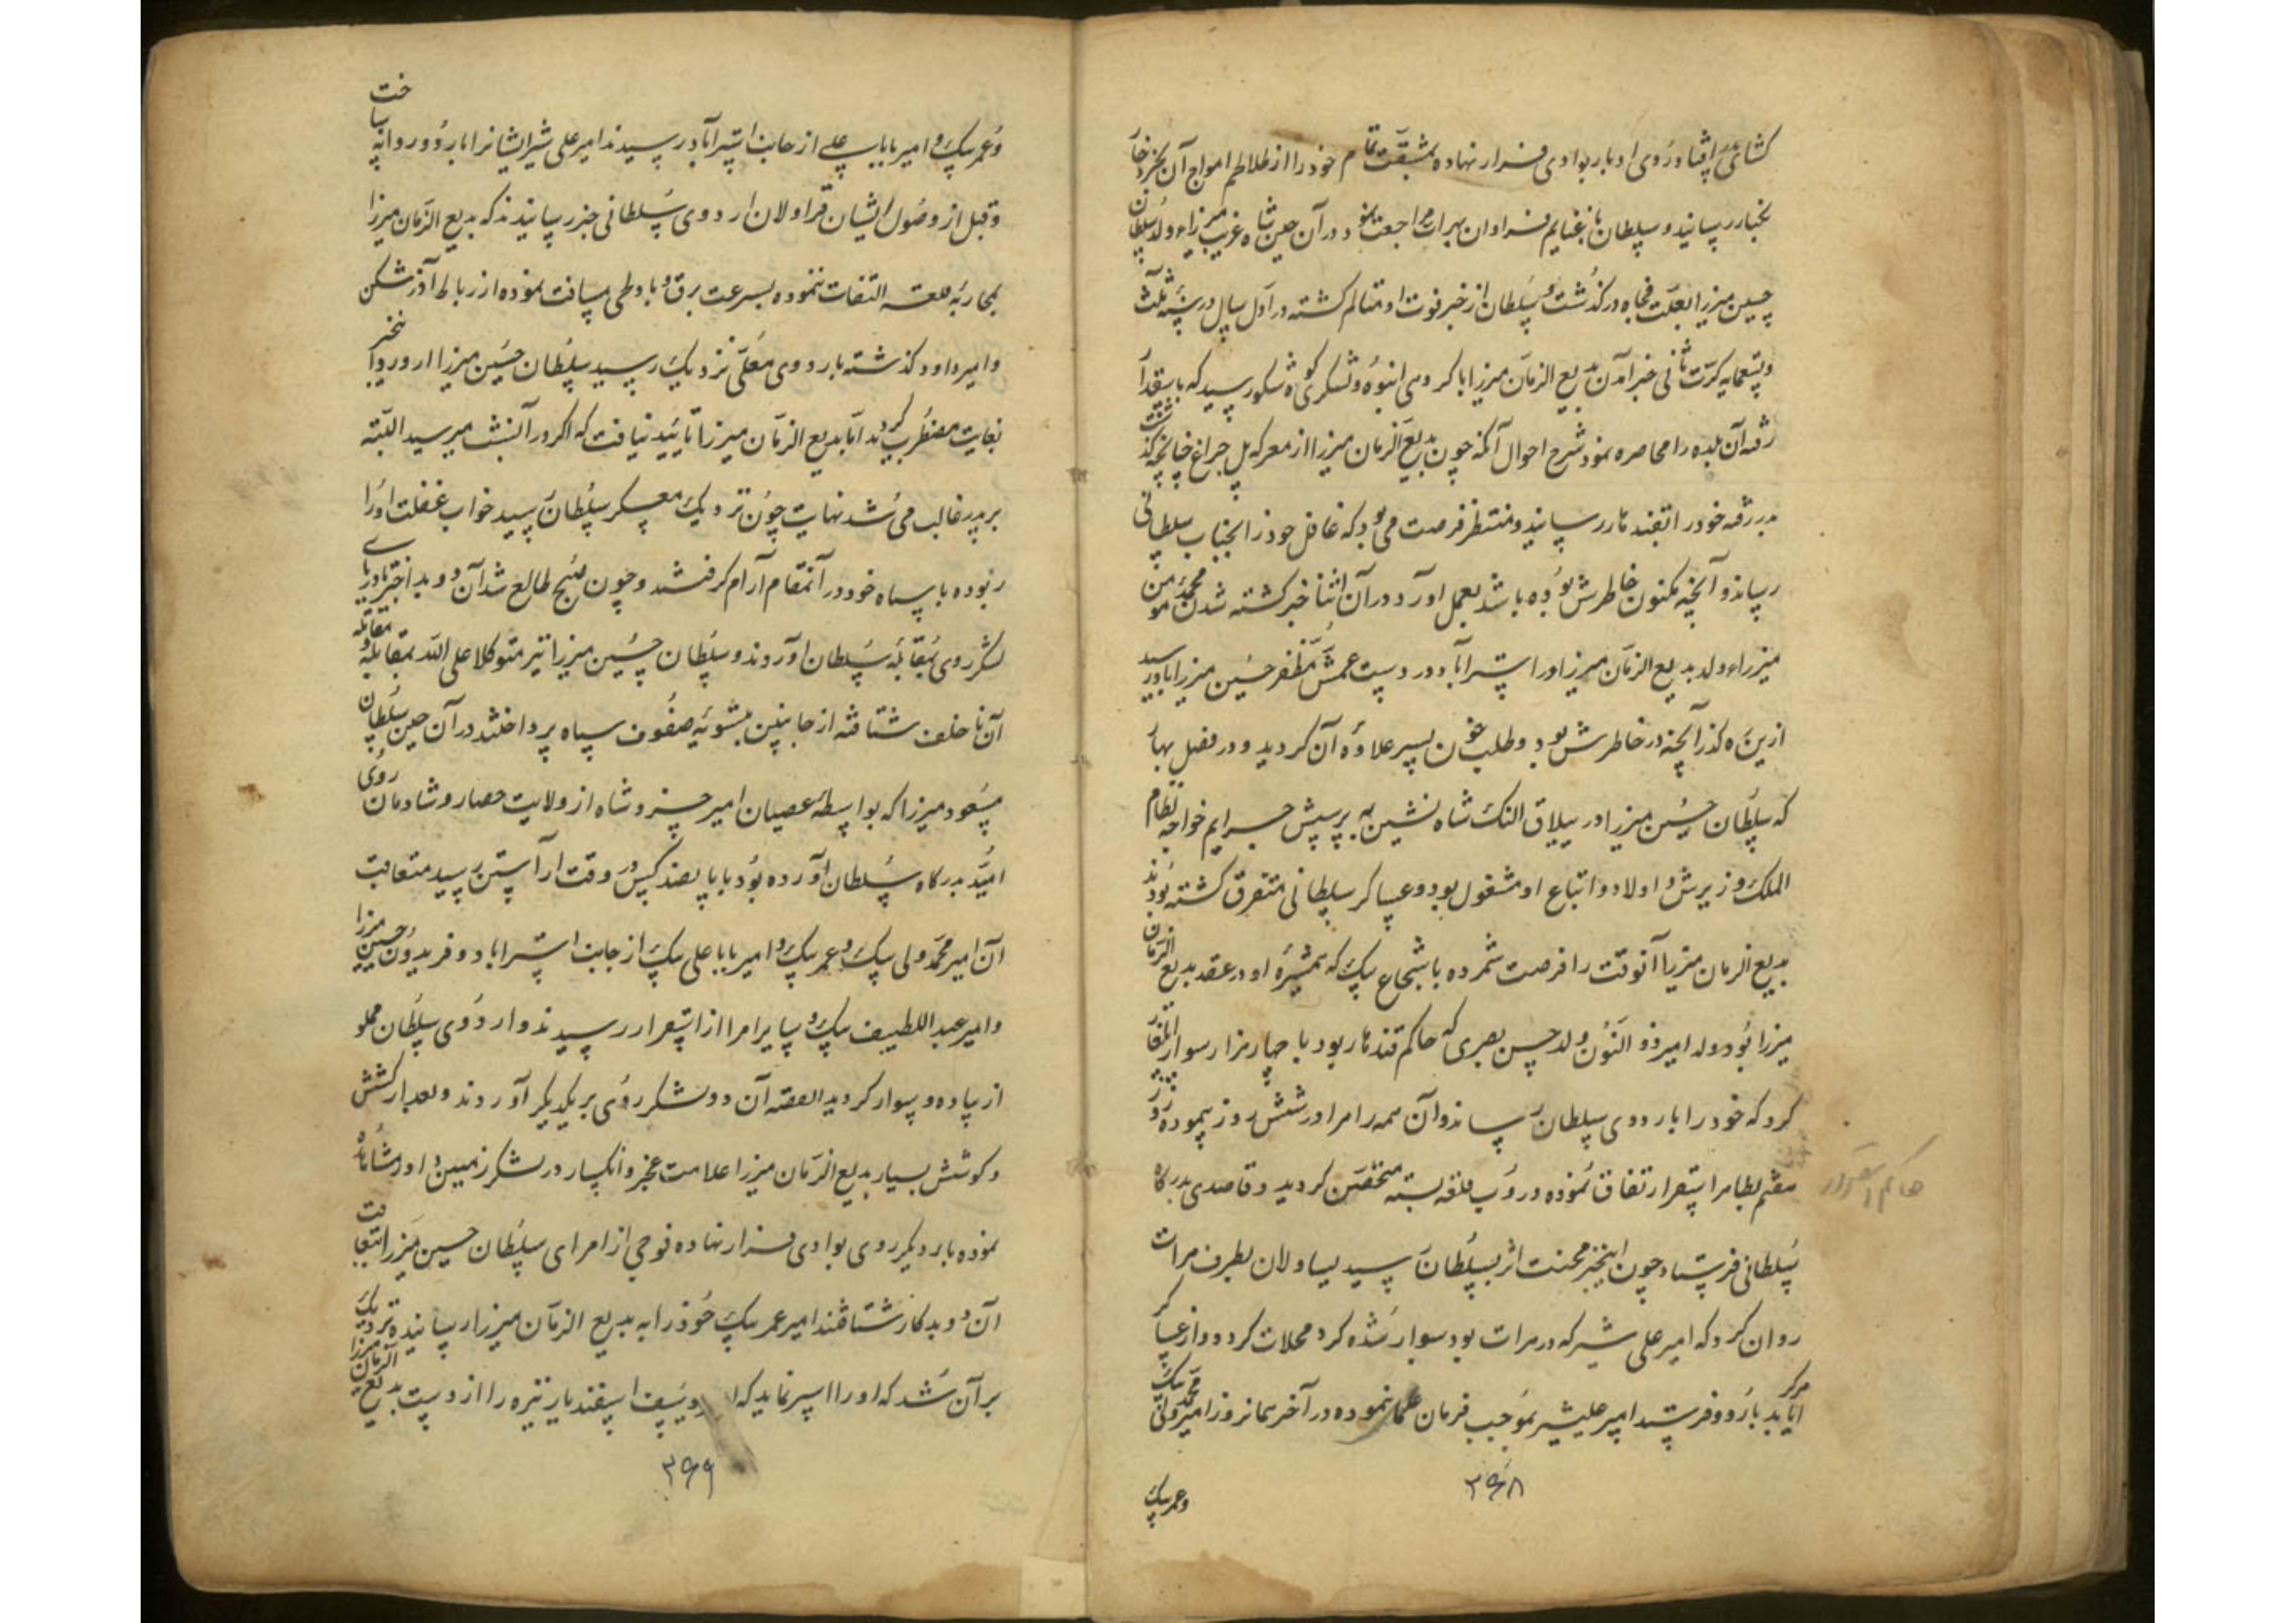 کشان در افتاد و روی ادبار بوادی فرار نهاده بمشقت تمام خود را از تلاطم امواج آن بحر ذخار
بکنار رسانید و سلطان با غنایم فراوان بهرات مراجعت نمود و در آن حین شاه غریب میرزاء ولد سلطان
حسین میرزا بعلت فجاه درگذشت و سلطان از خبر فوت او متالم کشته در اول سال در سنه ثلث
و تسعمایه کرت ثانی خبر آمدن بدیع الزمان میرزا با کروهی انبوه و لشکری کوه شکوه رسید که
رفته آن بلده را محاصره نمود شرح احوال آنکه چون بدیع الزمان میرزا از معرکه پل چراغ چنانچه گذشت
بدر رفته خود را بقندهار رسانید و منتظر فرصت می بود که غافل خود را بجناب سلطانی
رساند و آنچه مکنون خاطرش بوده باشد بعمل آورد در آن اثنا خبر کشته شدن محمد مومن
میرزاء ولد بدیع الزمان میرزا در استراباد در دست عمش مظفر حسین میرزا باو رسید
ازین ره گذر آنچه در خاطرش بود و طلب خون پسر علاوه آن کردید و در فصل بهار
که سلطان حسین میرزا در ییلاق النک شاه نشین به پرسش جرایم خواجه نظام
الملک وزیرش و اولاد و اتباع او مشغول بود و عساکر سلطانی متفرق کشته بودند
بدیع الزمان میرزا آنوقت را فرصت شمرده با شجاع بیک که همشیره او در عقد بدیع الزمان
میرزا بود ولد امیر ذو النون ولد حسن بصری که حاکم قندهار بود با چهار هزار سوار ایلغار
کرد که خود را باردوی سلطان رساند و آن همه راه را در شش روز پیموده روز
هفتم بظاهر اسفزار اتفاق نموده در و قلعه بسته متحصن کردید و قاصدی بدرکاه
حاکم اسفزار
سلطانی فرستاد چون این خبر محنت اثر بسلطان رسید یساولان بطرف هرات
روان کرد که امیر علی شیر که در هرات بود سوار شده کرد محلات کردد و از عساکر
هرکرا یابد باردو فرستد امیر علیشیر بموجب فرمان عمل نموده در آخر همانروز امیر محمد ولی بیک
و عمر بیک
۳۶۸
و عمر بیک و امیر بابا علی از جانب استراباد رسیدند امیر علی شیر ایشانرا باردو روانه ساخت
و قبل از وصول ایشان قراولان اردوی سلطانی خبر رسانیدند که بدیع الزمان میرزا
بمحاربه قلعه التفات ننموده بسرعت برق و باد طی مسافت نموده از رباط آدرشکن
و امیر داود گذشته باردوی معلی نزدیک رسید سلطان حسین میرزا از ورود این خبر
بغایت مضطرب کردید اما بدیع الزمان میرزا تایید نیافت که اگر در آن شب میرسید البته
بر پدر غالب می شد نهایت چون نزدیک معسکر سلطان رسید خواب غفلت او را
ربوده با سپاه خود در آنمقام آرام گرفتند و چون صبح طالع شد آن دو بد اختر با دریای
لشکر روی بمقابله سلطان آوردند و سلطان حسین میرزا نیز متوکلا علی الله بمقابله و مقاتله
آن ناخلف شتافته از جانبین بتسویه صفوف سپاه پرداختند در آن حین سلطان
مسعود میرزا که بواسطه عصیان امیر خسرو شاه از ولایت حصار و شادمان روی
امید بدرکاه سلطان آورده بود با پانصد کس در وقت آراستن رسید متعاقب
آن امیر محمد ولی بیک و عمر بیک و امیر بابا علی بیک از جانب استراباد و فریدون حسین میرزا
و امیر عبد اللطیف بیک و سایر امرا از اسفزار رسیدند و اردوی سلطان مملو
از پیاده و سوار کردید القصه آن دو لشکر روی بر یکدیگر آوردند و بعد از کشش
و کوشش بسیار بدیع الزمان میرزا علامت عجز و انکسار در لشکر ز مبین و او را مشاهده
نموده بار دیگر روی بوادی فرار نهاده فوجی از امرای سلطان حسین میرزا بتعاقب
آن دو بدکار شتافتند امیر عمر بیک خود را به بدیع الزمان میرزا رسانیده نزدیک
بر آن شد که او را اسیر نماید که یوسف اسفندیار نیزه را از دست بدیع الزمان میرزا
۳۶۹